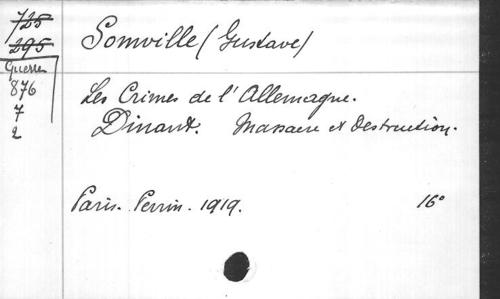 725
295
Guerre
876
7
2
Somville (Gustave)
Les Crimes de l'Allemagne.
Dinant. Massacre et destruction.
Paris. Perrin. 1919. 16°